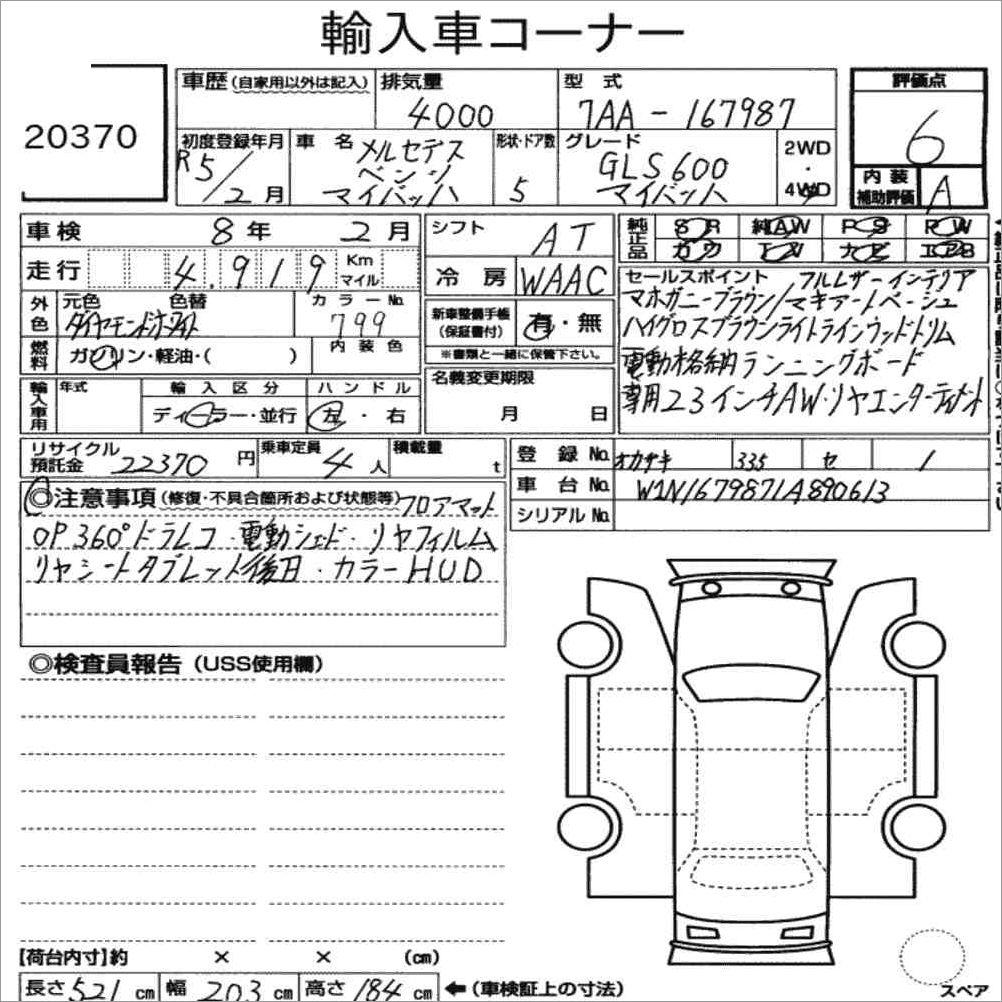 輸入車コーナー
20370
車歴(自家用以外は記入) 排気量 4000 型 式 7AA-167987 評価点 6
初度登録年月 R5/2月 車 名 メルセデス ベンツ マイバッハ 形状・ドア数 5 グレード GLS600 マイバッハ 2WD・4WD
内装補助評価 A
車検 8年 2月
走行 4,919 Km マイル
外色 元色 色替 ダイヤモンドホワイト カラーNo. 799
燃料 ガソリン・軽油・( ) 内装色
輸入車用 年式 輸入区分 ディーラー・並行 ハンドル 左・右
シフト AT
冷房 WAAC
新車整備手帳(保証書付) 有・無
※書類と一緒に保管下さい。
名義変更期限
月 日
純正品 SR 純AW PS PW
カワ TV ナビ エアB
セールスポイント フルレザーインテリア
マホガニーブラウン/マキアートベージュ
ハイグロスブラウンライトラインウッドトリム
電動格納ランニングボード
専用23インチAW・リヤエンターテイメント
リサイクル預託金 22370円 乗車定員 4人 積載量 t
登録No. オカザキ 335 セ 1
車台No. W1N1679871A890613
シリアルNo.
◎注意事項(修復・不具合箇所および状態等)フロアマット
OP360°ドラレコ・電動シェード・リヤフィルム
リヤシートタブレット後日・カラーHUD
◎検査員報告(USS使用欄)
【荷台内寸】約 × × (cm)
長さ521cm 幅203cm 高さ184cm ←(車検証上の寸法)
スペア